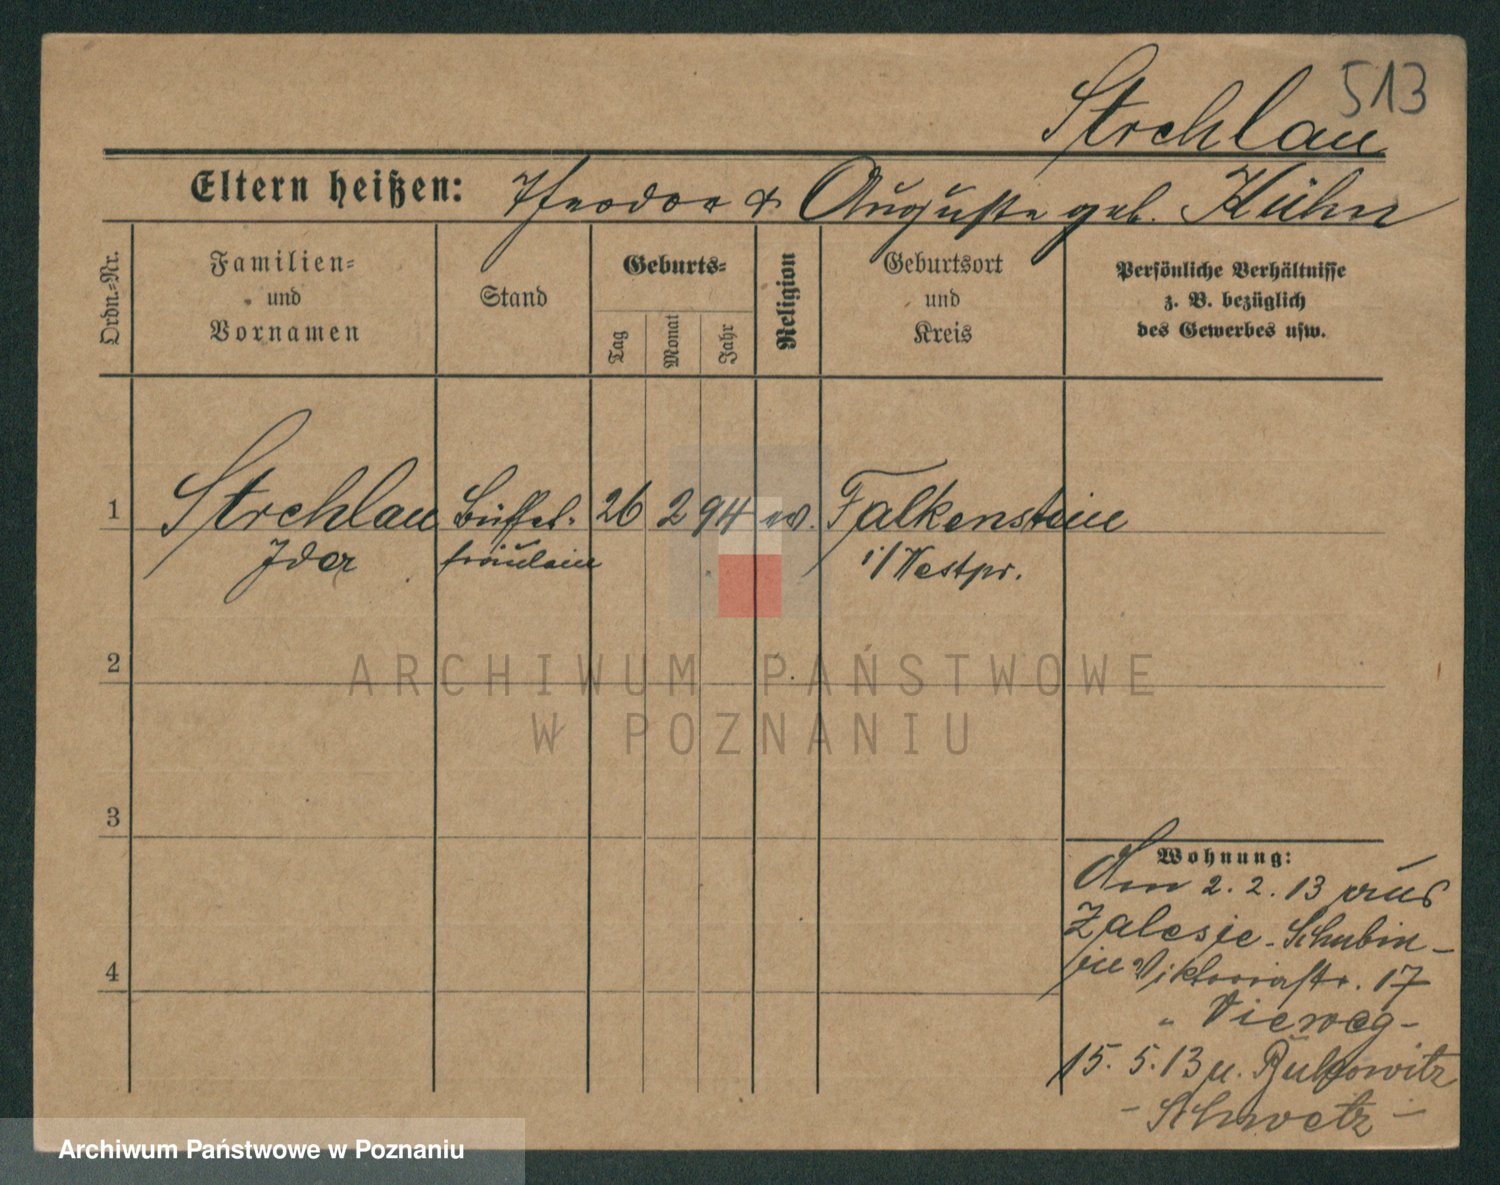 513
Strehlau
Eltern heißen: Theodor & Auguste geb. Kühn
Ordn.-Nr.
Familien-
und
Vornamen
Stand
Geburts-
Tag
Monat
Jahr
Religion
Geburtsort
und
Kreis
Persönliche Verhältnisse
z. B. bezüglich
des Gewerbes usw.
1 Strehlau Büffet- 26 2 94 ev. Falkenstein
Ida fräulein i/Westpr.
2
ARCHIWUM PAŃSTWOWE
W POZNANIU
3
4
Wohnung:
Am 2. 2. 13 aus
Zalesie - Schubin -
Viktoriastr. 17
" Vieweg -
15. 5. 13 n. Bukowitz
- Schwetz -
Archiwum Państwowe w Poznaniu